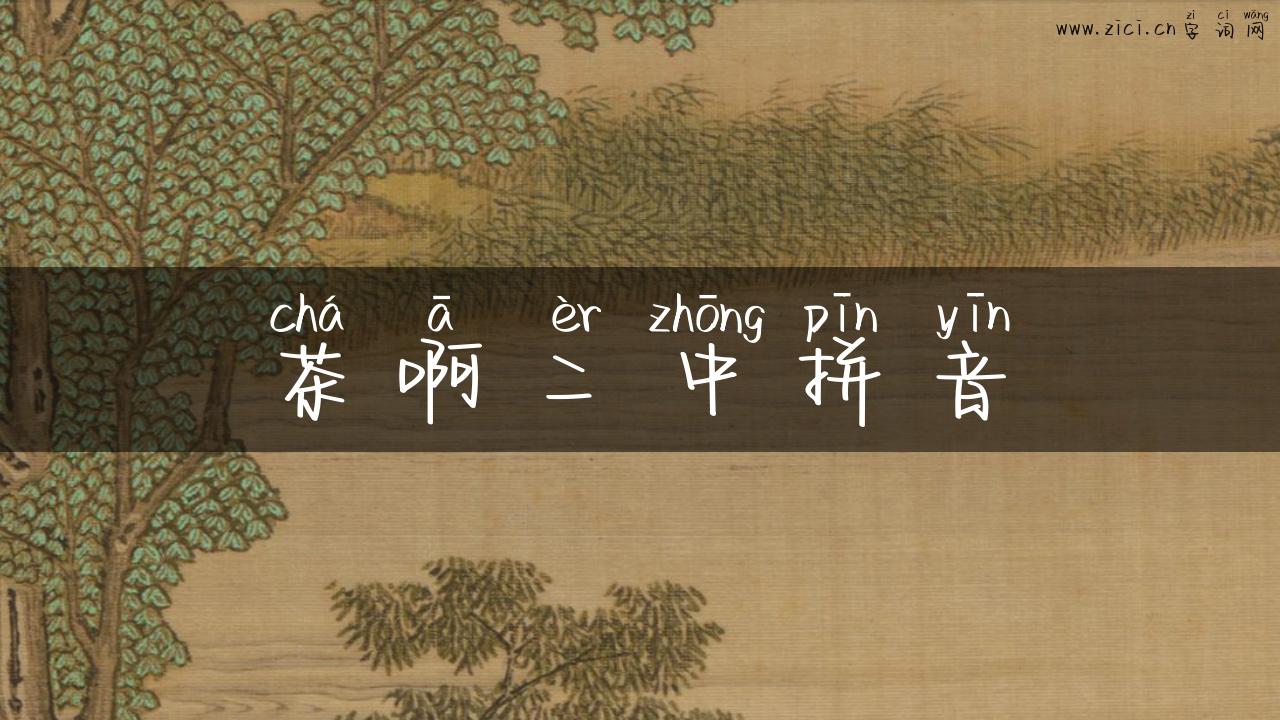 zì cí wǎng
www.zici.cn字词网
chá ā èr zhōng pīn yīn
茶啊二中拼音